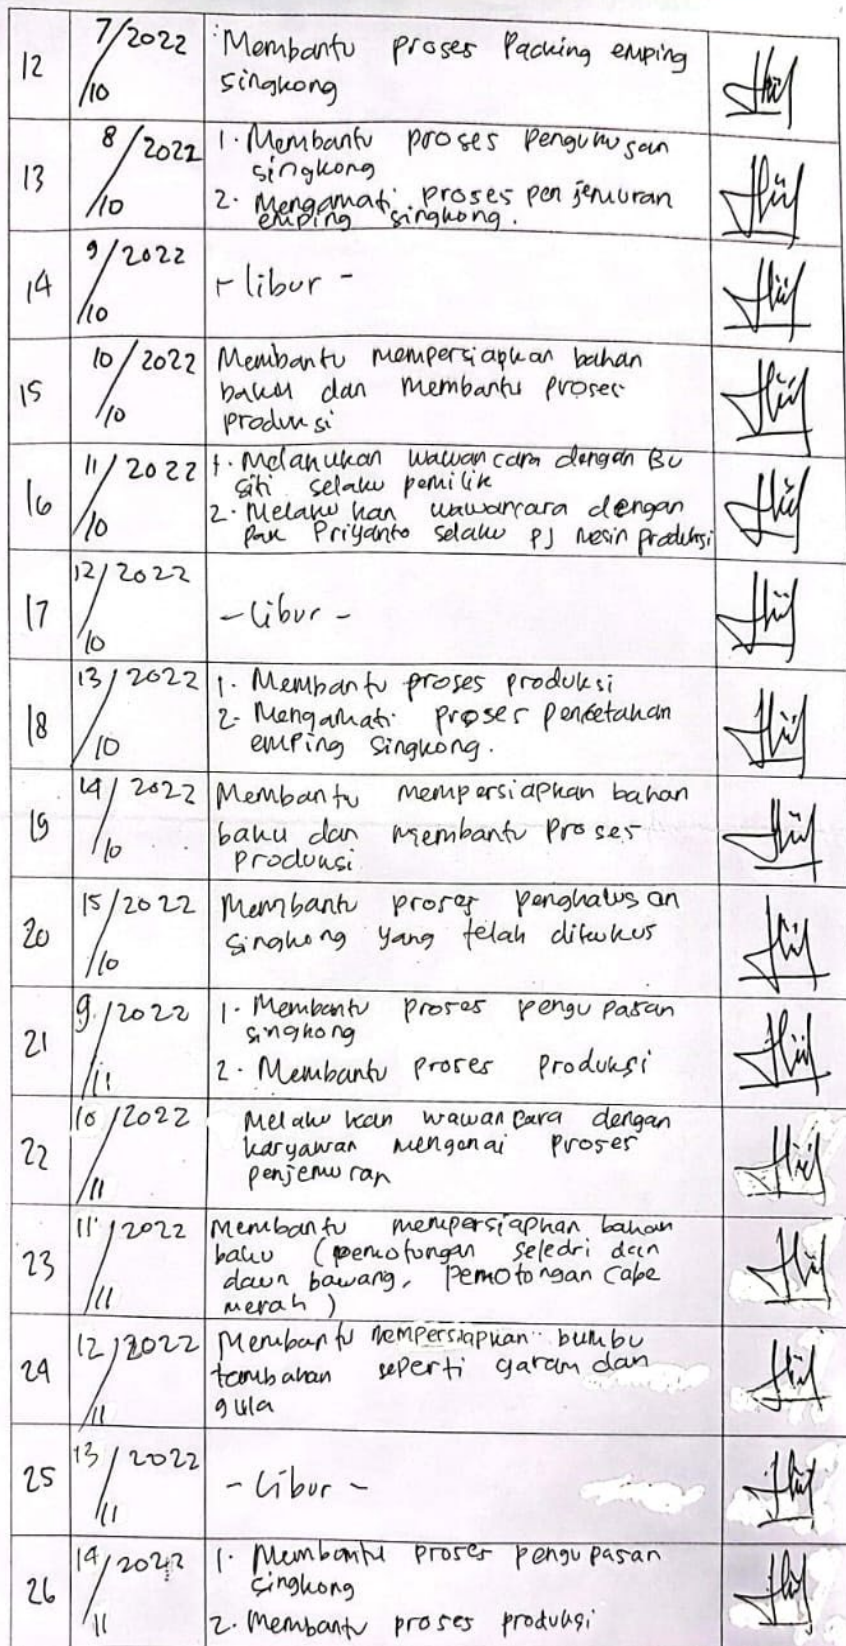 12 7/10/2022 Membantu proses Packing emping
singkong
13 8/10/2022 1. Membantu proses pengukusan
singkong
2. Mengamati proses penjemuran
emping singkong.
14 9/10/2022 - libur -
15 10/10/2022 Membantu mempersiapkan bahan
baku dan membantu proses
produksi
16 11/10/2022 1. Melakukan wawancara dengan Bu
Siti selaku pemilik
2. Melakukan wawancara dengan
Pak Priyanto selaku PJ mesin produksi
17 12/10/2022 - Libur -
18 13/10/2022 1. Membantu proses produksi
2. Mengamati proses pencetakan
emping singkong.
19 14/10/2022 Membantu mempersiapkan bahan
baku dan membantu proses
produksi
20 15/10/2022 Membantu proses penghalusan
singkong yang telah dikukus
21 9/11/2022 1. Membantu proses pengupasan
singkong
2. Membantu proses produksi
22 10/11/2022 Melakukan wawancara dengan
karyawan mengenai proses
penjemuran
23 11/11/2022 Membantu mempersiapkan bahan
baku (pemotongan seledri dan
daun bawang, pemotongan cabe
merah)
24 12/11/2022 Membantu mempersiapkan bumbu
tambahan seperti garam dan
gula
25 13/11/2022 - Libur -
26 14/11/2022 1. Membantu proses pengupasan
singkong
2. Membantu proses produksi